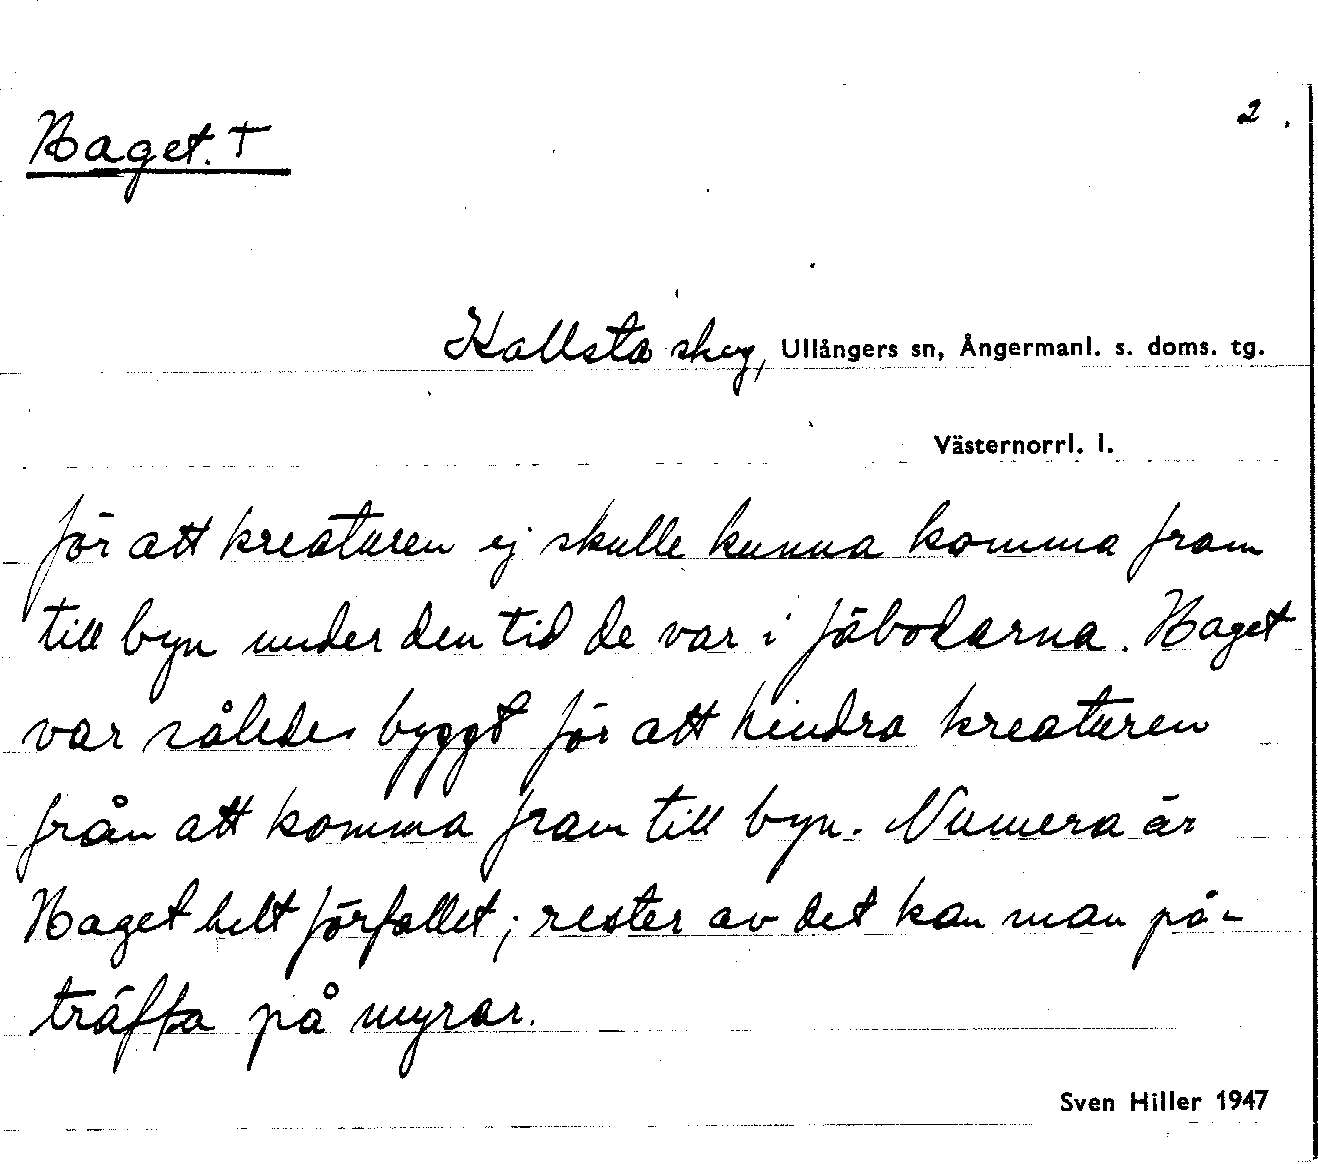 Haget. +
2.
Kallsta skog, Ullångers sn, Ångermanl. s. doms. tg.
Västernorrl. l.
för att kreaturen ej skulle kunna komma fram
till byn under den tid de var i fäbodarna. Haget
var således byggt för att hindra kreaturen
från att komma fram till byn. Numera är
Haget helt förfallet; rester av det kan man på-
träffa på myrar.
Sven Hiller 1947